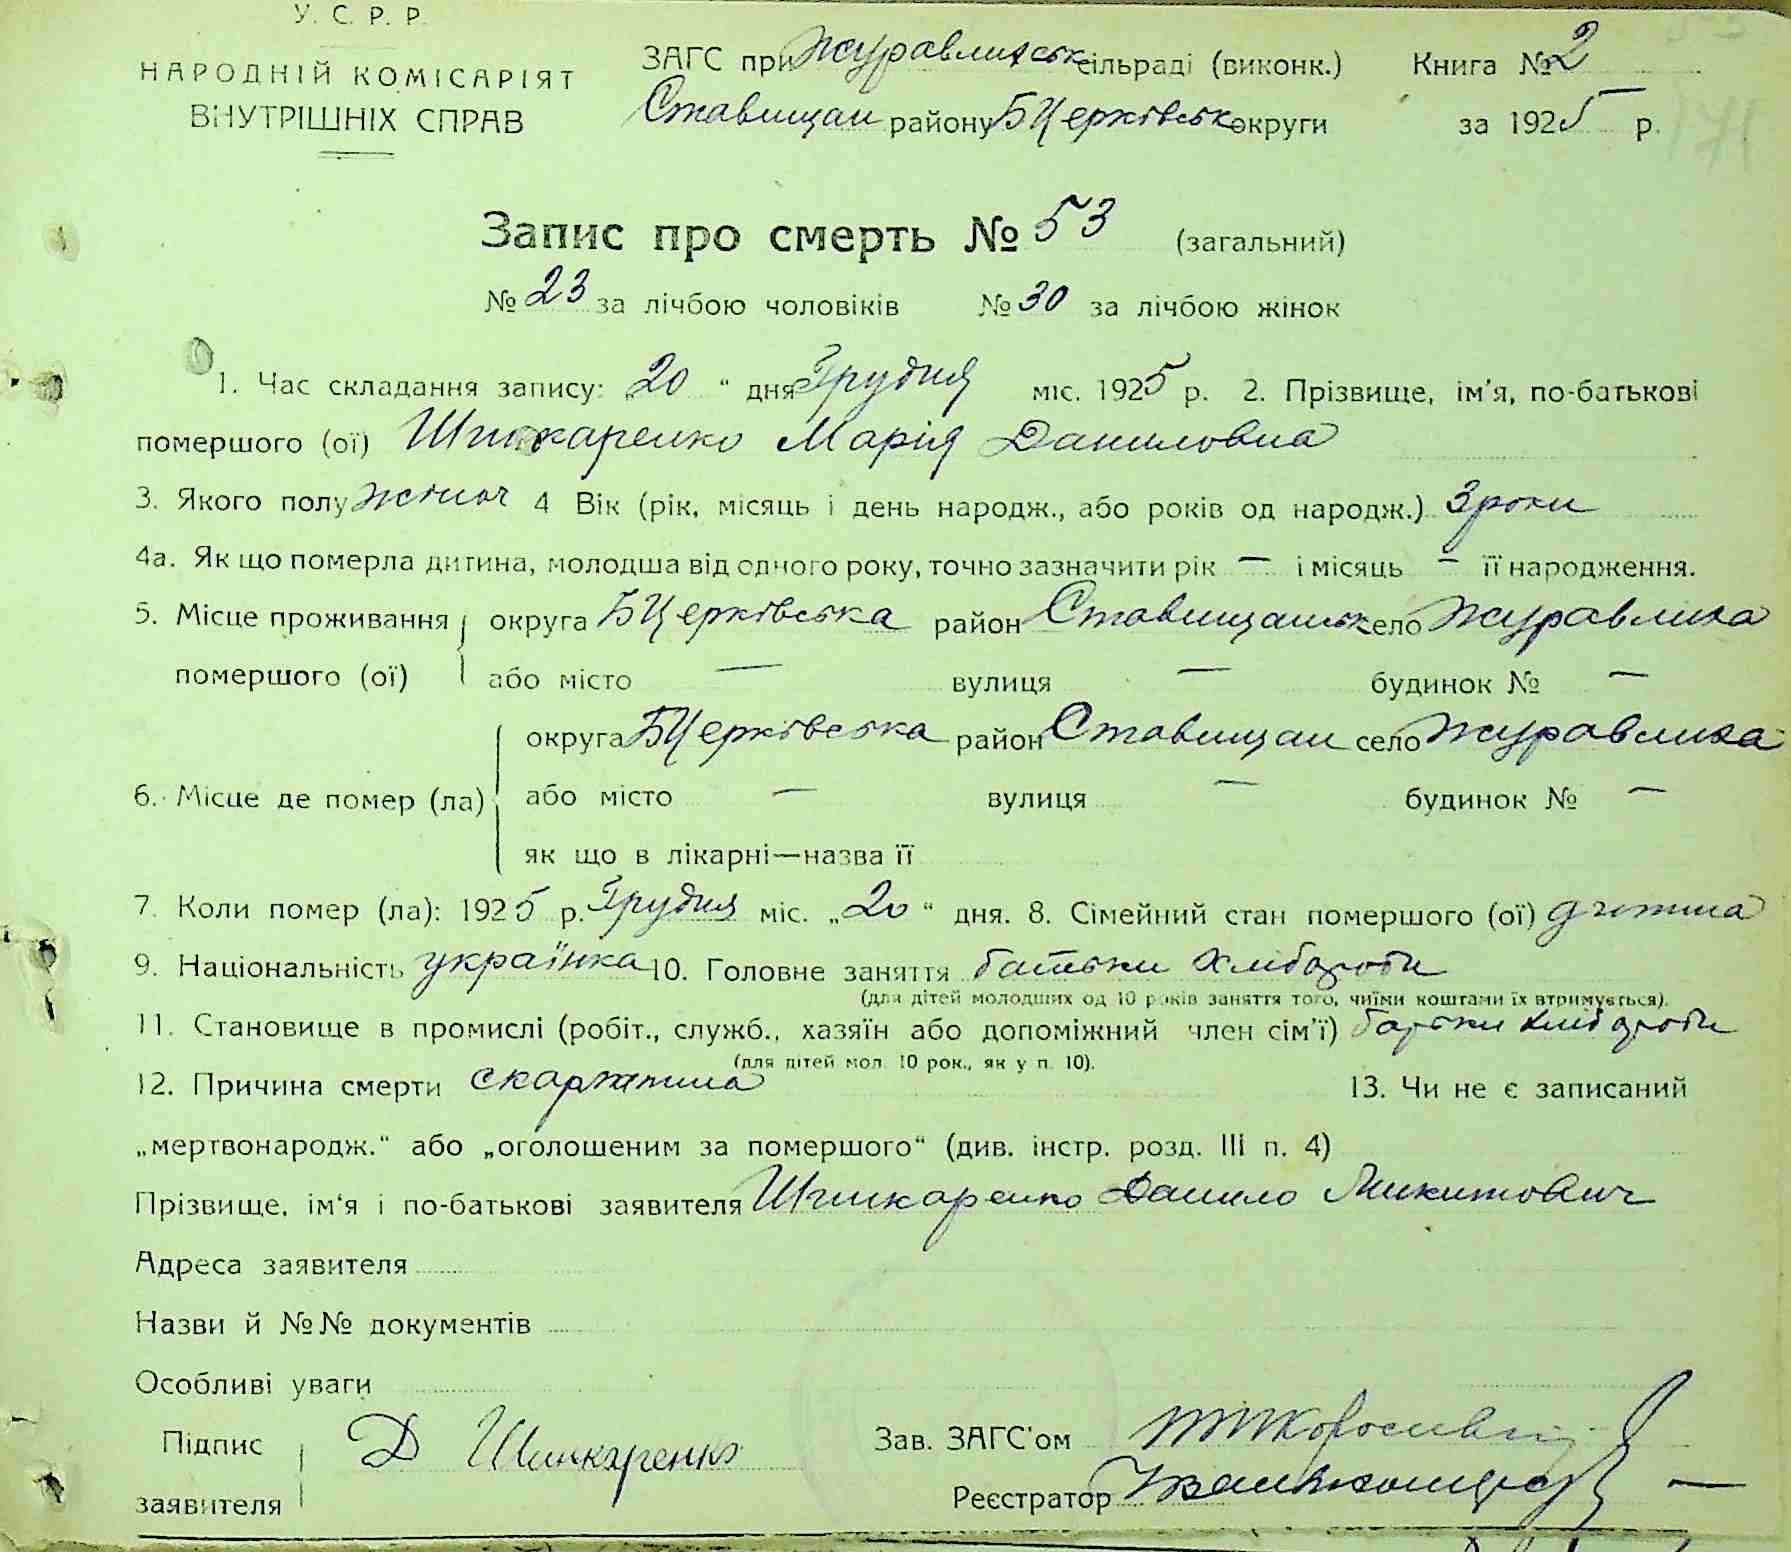 У. С. Р. Р.
НАРОДНІЙ КОМІСАРІЯТ
ВНУТРІШНІХ СПРАВ
ЗАГС при Журавлихськ сільраді (виконк.) Книга № 2
Ставищан району БЦерківськ округи за 1925 р.
Запис про смерть № 53 (загальний)
№ 23 за лічбою чоловіків № 30 за лічбою жінок
1. Час складання запису: „20“ дня Грудня міс. 1925 р. 2. Прізвище, ім'я, по-батькові
помершого (ої) Шинкаренко Марія Даниловна
3. Якого полу жіноч 4 Вік (рік, місяць і день народж., або років од народж.) 3 роки
4а. Як що померла дитина, молодша від одного року, точно зазначити рік — і місяць — її народження.
5. Місце проживання округа БЦерківська район Ставищанськ село Журавлиха
помершого (ої) або місто — вулиця — будинок № —
округа БЦерківська район Ставищан село Журавлиха
6. Місце де помер (ла) або місто — вулиця — будинок № —
як що в лікарні—назва її
7. Коли помер (ла): 1925 р. Грудня міс. „20“ дня. 8. Сімейний стан помершого (ої) дитина
9. Національність українка 10. Головне заняття батьки хлібороби
(для дітей молодших од 10 років заняття того, чиїми коштами їх втримується).
11. Становище в промислі (робіт., служб., хазяїн або допоміжний член сім'ї) батьки хлібороби
(для дітей мол. 10 рок., як у п. 10).
12. Причина смерти скарлатина 13. Чи не є записаний
„мертвонародж.“ або „оголошеним за помершого“ (див. інстр. розд. III п. 4)
Прізвище, ім'я і по-батькові заявителя Шинкаренко Данило Микитович
Адреса заявителя
Назви й №№ документів
Особливі уваги
Підпис заявителя Д Шинкаренко
Зав. ЗАГС'ом
Реєстратор